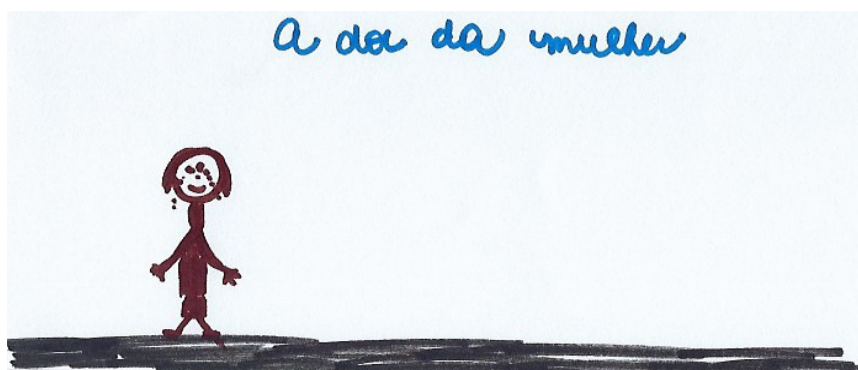 A dor da mulher